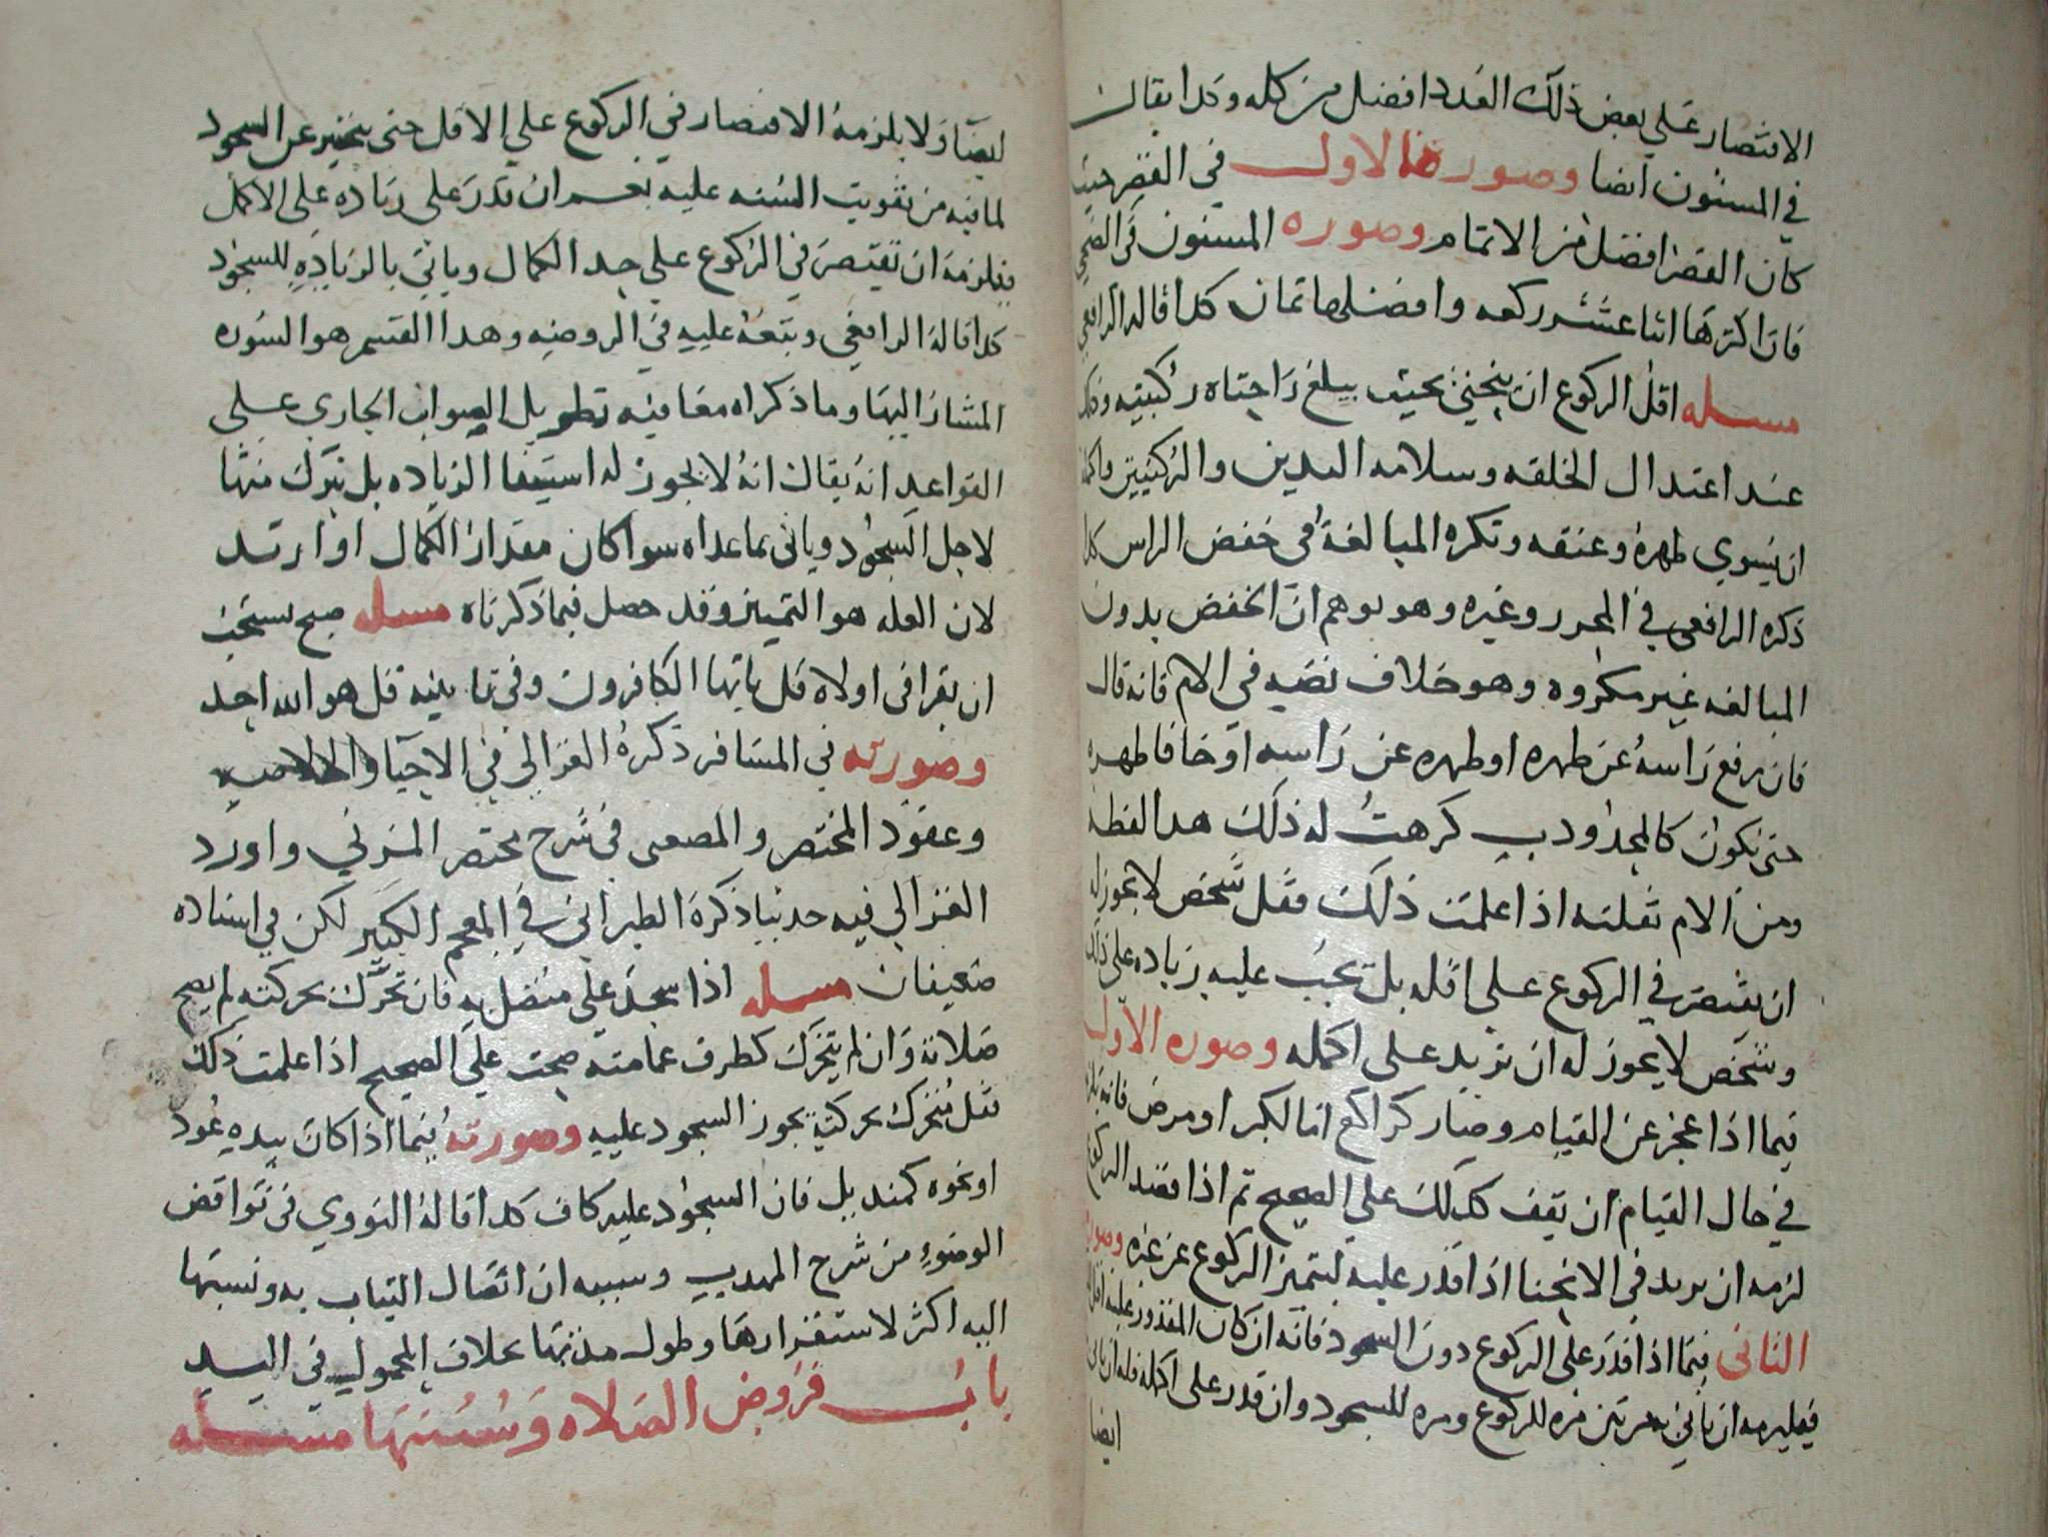 الاقتصار على بعض ذلك العدد افضل من كله وكذا يقال
في المسنون ايضا وصورة الاول في القصر حيث
كان القصر افضل من الاتمام وصوره المسنون في الضحي
فان اكثرها اثنا عشر ركعه وافضلها ثمان كذا قاله الرافعي
مسله اقل الركوع ان ينحني بحيث يبلغ راحتاه ركبتيه وذلك
عند اعتدال الخلقه وسلامه اليدين والركبتين واكمله
ان يسوي ظهره وعنقه وتكره المبالغة في خفض الراس كذا
ذكره الرافعي في المحرر وغيره وهو يوهم ان الخفض بدون
المبالغه غير مكروه وهو خلاف نصه في الام فانه قال
فان رفع راسه عن ظهره او ظهره عن راسه او جافا ظهره
حتى يكون كالمحدودب كرهت له ذلك هذا لفظه
ومن الام نقلته اذا علمت ذلك فقل شخص لا يجوز له
ان يقتصر في الركوع على اقله بل يجب عليه زياده على ذلك
وشخص لا يجوز له ان يزيد على اكمله وصوره الاول
فيما اذا عجز عن القيام وصار كراكع اما لكبر او مرض فانه يلزمه
في حال القيام ان يقف كذلك على الصحيح ثم اذا قصد الركوع
لزمه ان يزيد في الانحنا اذا قدر عليه ليتميز الركوع عن غيره وصورة
الثاني فيما اذا قدر على الركوع دون السجود فانه ان كان المقدور عليه اقل
فيلزمه ان ياتي به مرتين مره للركوع ومره للسجود وان قدر على اكمله فله ان ياتي
ايضا
ايضا ولا يلزمه الاقتصار في الركوع على الاقل حتى يتميز عن السجود
لما فيه من تفويت السنه عليه نعم ان قدر على زياده على الاكمل
فيلزمه ان يقتصر في الركوع على حد الكمال وياتي بالزياده للسجود
كذا قاله الرافعي وتبعه عليه في الروضه وهذا القسم هو السوره
المشار اليها وما ذكراه معا فيه تطويل الصواب الجاري على
القواعد انه يقال انه لا يجوز له استيفا الزياده بل يترك منها
لاجل السجود وياتي بما عداه سوا كان مقدار الكمال او ازيد
لان العله هو التمييز وقد حصل فيما ذكرناه مسله صبح يستحب
ان يقرا في اولاه قل ياتها الكافرون وفي ثانيته قل هو الله احد
وصورته في المسافر ذكره الغزالي في الاحيا والخلاصه
وعقود المختصر والمصعبي في شرح مختصر المزني واورد
الغزالي فيه حديثا ذكره الطبراني في المعجم الكبير لكن في اسناده
ضعيفان مسله اذا سجد على متصل به فان تحرك بحركته لم يصح
صلاته وان لم يتحرك كطرف عمامته صحت على الصحيح اذا علمت ذلك
فقل متحرك بحركته يجوز السجود عليه وصورته فيما اذا كان بيده عود
او نحوه كمنديل فان السجود عليه كاف كذا قاله النووي في نواقض
الوضوء من شرح المهذب وسببه ان اتصال الثياب به ونسبتها
اليه اكثر لاستقرارها وطول مدتها بخلاف المحمول في اليد
باب فروض الصلاه وسننها مسله